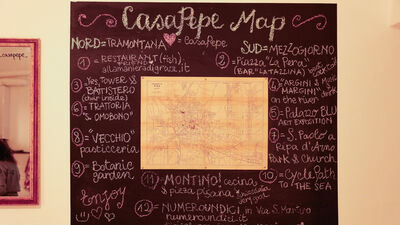 CasaPepe Map
NORD = TRAMONTANA
= CasaPepe
SUD = MEZZOGIORNO
1 = RESTAURANT (fish)
allamanieradigrazie.it
2 = Piazza "La Pera"
(BAR "LA TAZZINA")
3 = Yes TOWER &
BATTISTERO
(choir inside)
4 = "ARGINI &
MARGINI"
on the river
5 = Palazzo BLU
ART EXPOSITION
6 = TRATTORIA
"S. OMOBONO"
7 = S. Paolo a
Ripa d'Arno
PARK & CHURCH
8 = "VECCHIO"
pasticceria
9 = Botanic
garden
10 = Cycle Path
TO THE SEA
11 = MONTINO! cecina
& pizza pisana
12 = NUMEROUNDICI in Via S. Martino
numeroundici.it
Enjoy